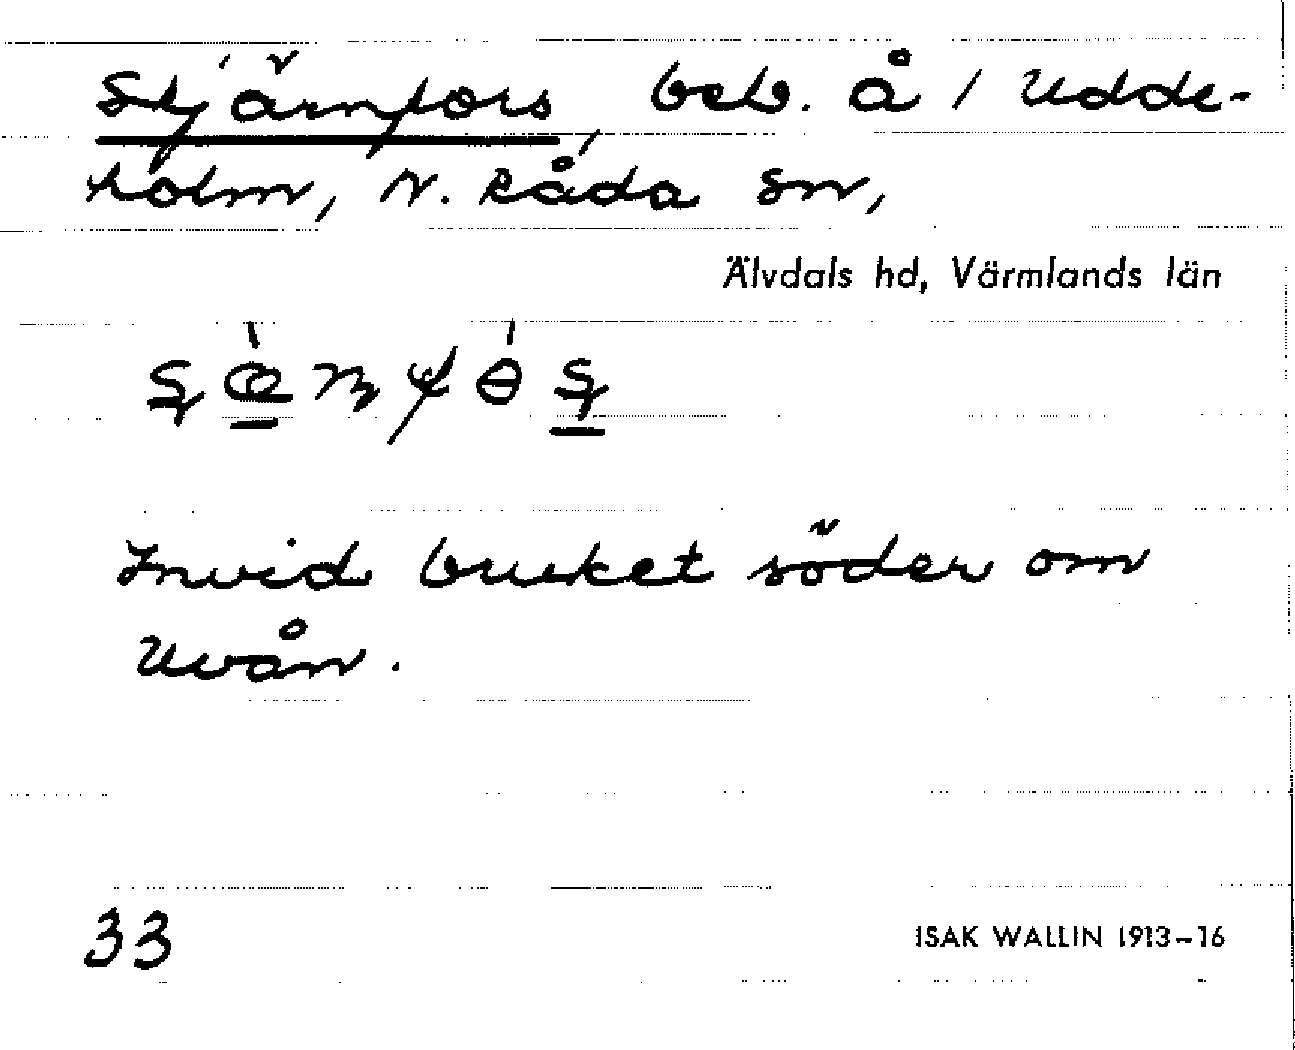 Stjärnfors, beb. å 1 Udde-
holm, N. Råda sn,
Älvdals hd, Värmlands län
Invid bruket söder om
Uvån.
33
ISAK WALLIN 1913–16